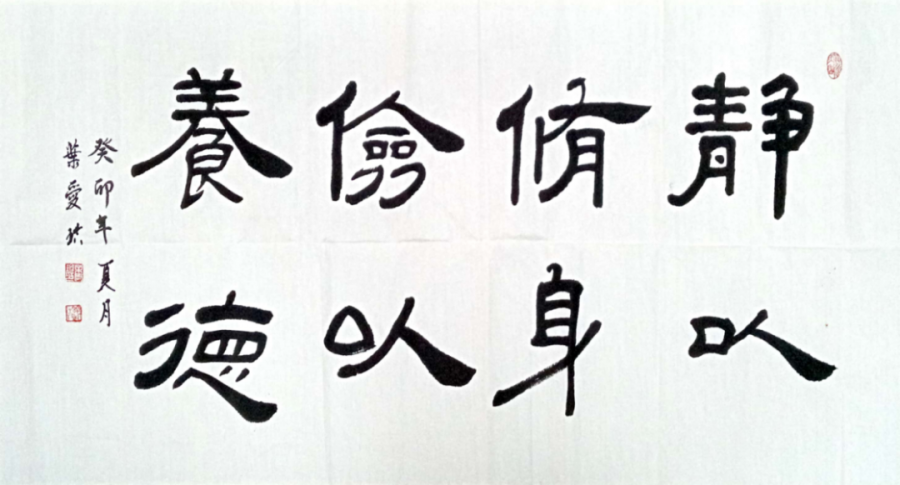 静以
脩身
儉以
養德
癸卯年夏月
葉愛